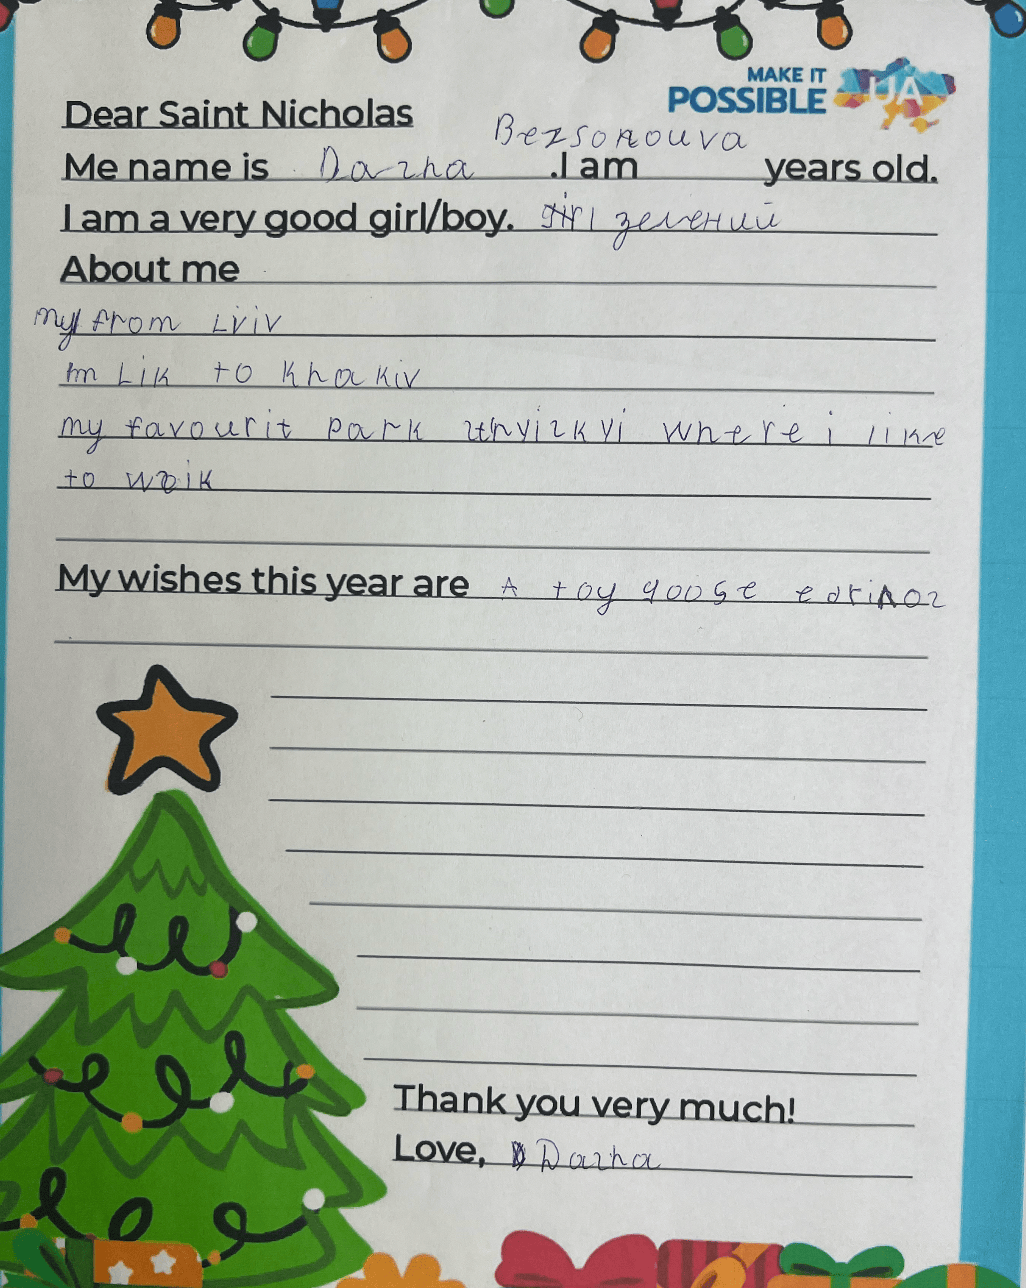 MAKE IT
POSSIBLE UA
Dear Saint Nicholas
Bezsonouva
Me name is Darha .I am years old.
I am a very good girl/boy. girl зелений
About me
my from Lviv
Im Lik to Khakiv
my favourit park where i like
to
My wishes this year are A toy goose
Thank you very much!
Love, Darha